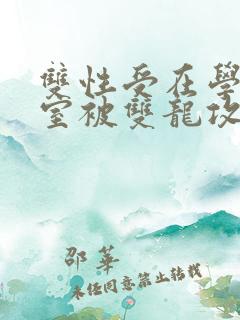 雙性受在學
室被雙龍攻
邵華
未任同意禁止转载